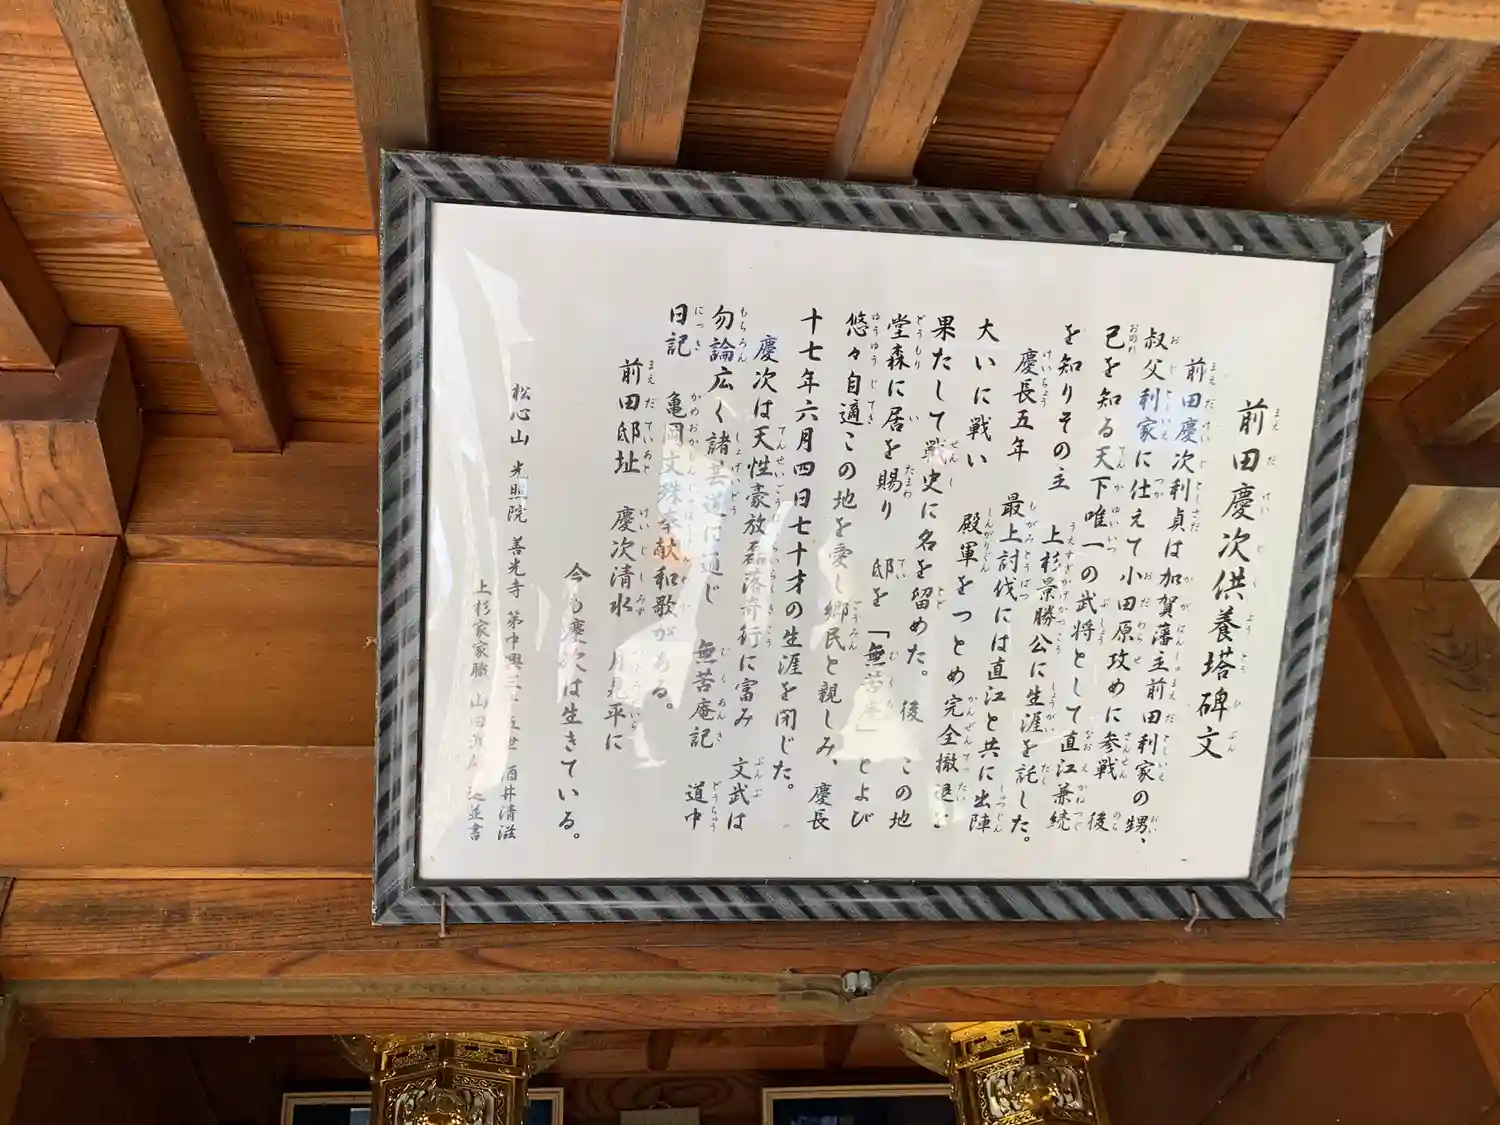 前田慶次供養塔碑文
前田慶次利貞は加賀藩主前田利家の甥、
叔父利家に仕えて小田原攻めに参戦 後
己を知る天下唯一の武将として直江兼続
を知りその主 上杉景勝公に生涯を託した。
慶長五年 最上討伐には直江と共に出陣
大いに戦い 殿軍をつとめ完全撤退を
果たして戦史に名を留めた。 後 この地
堂森に居を賜り 邸を「無苦庵」とよび
悠々自適この地を愛し郷民と親しみ、慶長
十七年六月四日七十才の生涯を閉じた。
慶次は天性豪放磊落奇行に富み 文武は
勿論広く諸芸道に通じ 無苦庵記 道中
日記 亀岡文殊奉献和歌がある。
前田邸址 慶次清水 月見平に
今も慶次は生きている。
松心山 光照院 善光寺 第中興三十五世 酒井清滋
上杉家家職 山田 並書